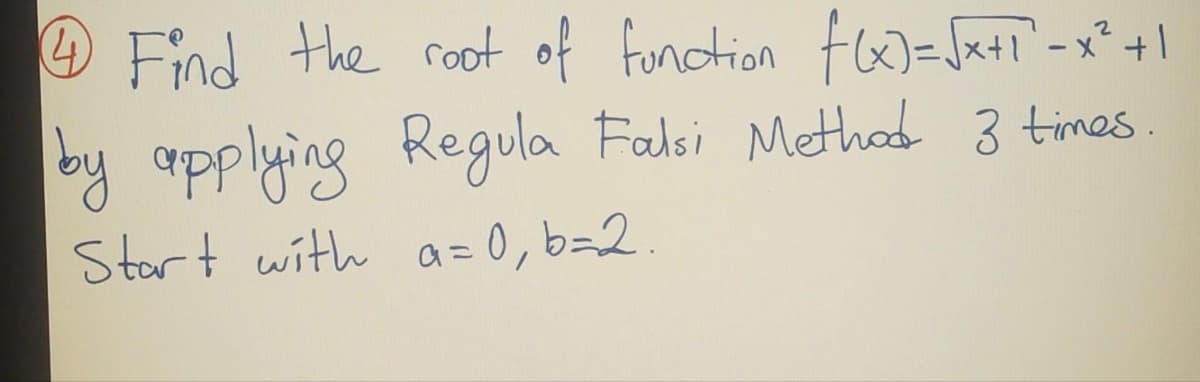 ④ Find the root of function f(x)=√x+1 - x² +1
by applying Regula Falsi Method 3 times.
Start with a=0, b=2.